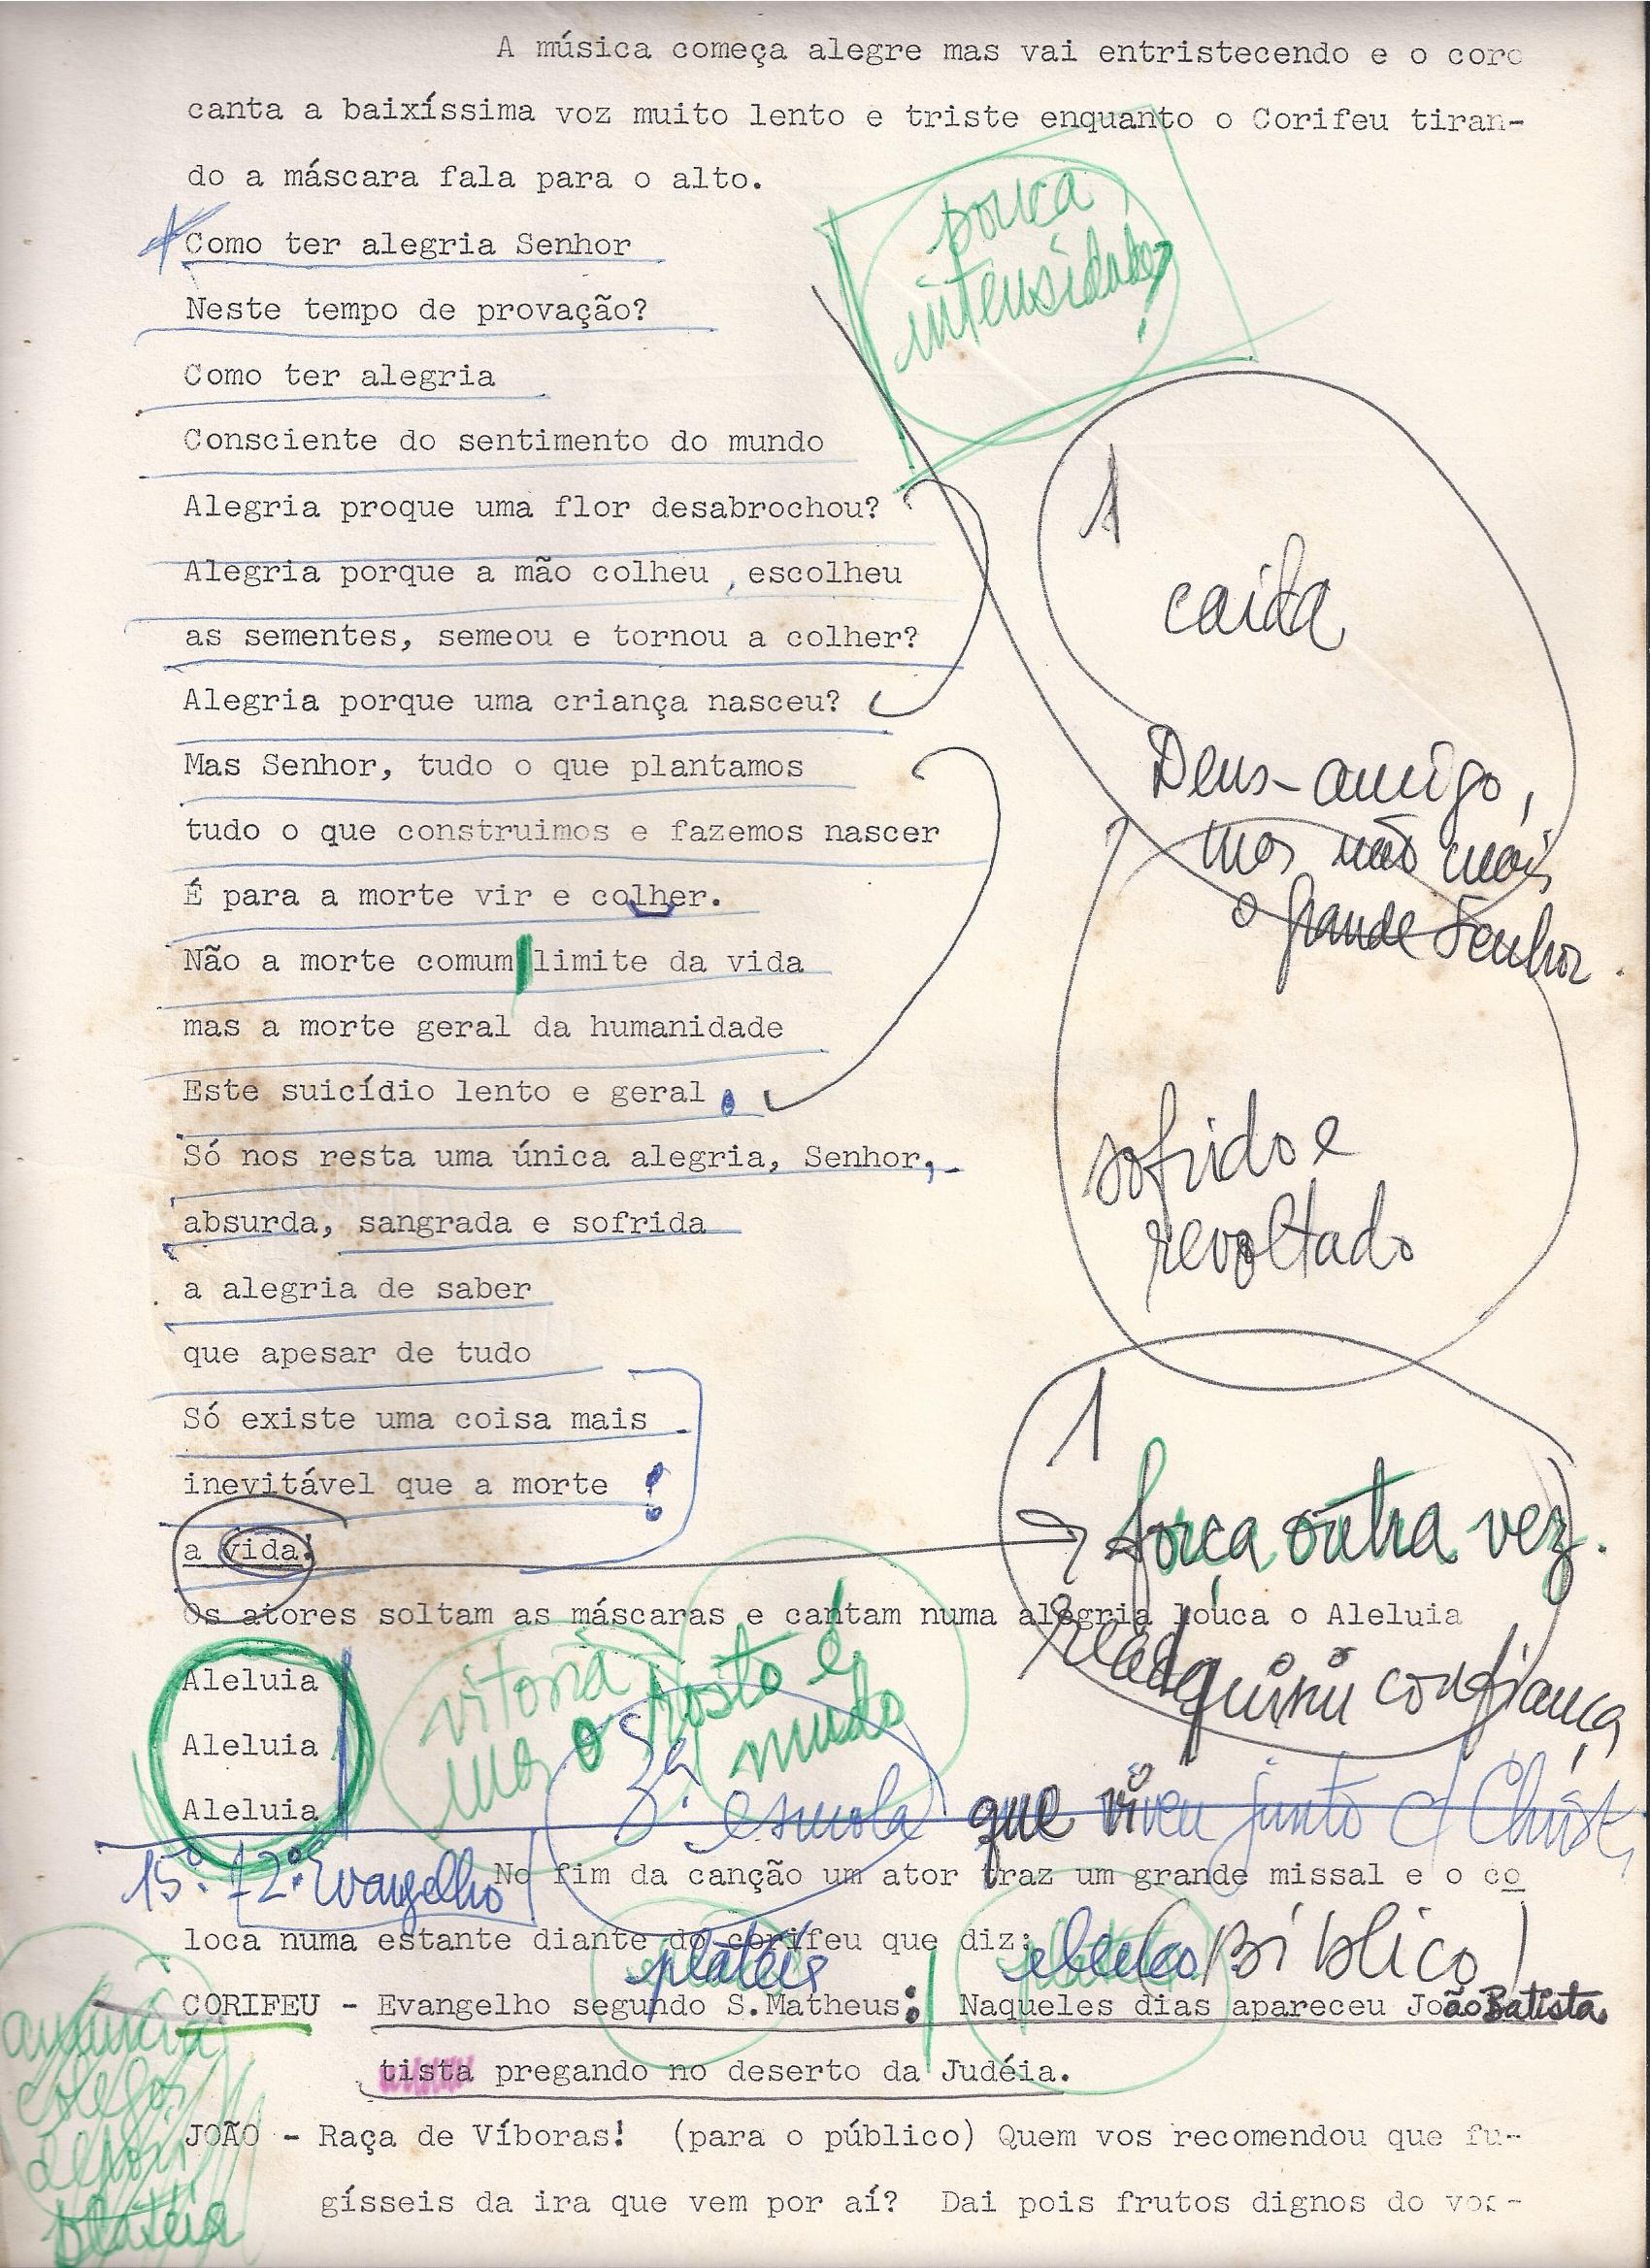 A música começa alegre mas vai entristecendo e o coro
canta a baixíssima voz muito lento e triste enquanto o Corifeu tiran-
do a máscara fala para o alto.
pouca
intensidade
!
Como ter alegria Senhor
Neste tempo de provação?
Como ter alegria
Consciente do sentimento do mundo
Alegria proque uma flor desabrochou?
1
Alegria porque a mão colheu , escolheu
caida
as sementes, semeou e tornou a colher?
Alegria porque uma criança nasceu?
Mas Senhor, tudo o que plantamos
Deus-amigo,
tudo o que construimos e fazemos nascer
mas não mais
É para a morte vir e colher.
o grande Senhor.
Não a morte comum limite da vida
mas a morte geral da humanidade
Este suicídio lento e geral.
Só nos resta uma única alegria, Senhor,
sofrido e
absurda, sangrada e sofrida
revoltado
a alegria de saber
que apesar de tudo
Só existe uma coisa mais
1
inevitável que a morte !
a vida!
força outra vez.
Os atores soltam as máscaras e cantam numa alegria louca o Aleluia
readquiriu confiança
Aleluia
Aleluia
Aleluia
vitória
mas o rosto é
mudo
3ª escola que viveu junto c/ Christ
15º. 12º. Evangelho
No fim da canção um ator traz um grande missal e o co
loca numa estante diante do corifeu que diz:
platéia
elenco (Bíblico)
CORIFEU - Evangelho segundo S.Matheus: Naqueles dias apareceu João Batista
tista pregando no deserto da Judéia.
anuncia
colegas
depois
platéia
JOÃO - Raça de Víboras! (para o público) Quem vos recomendou que fu-
gísseis da ira que vem por aí? Dai pois frutos dignos do vos-